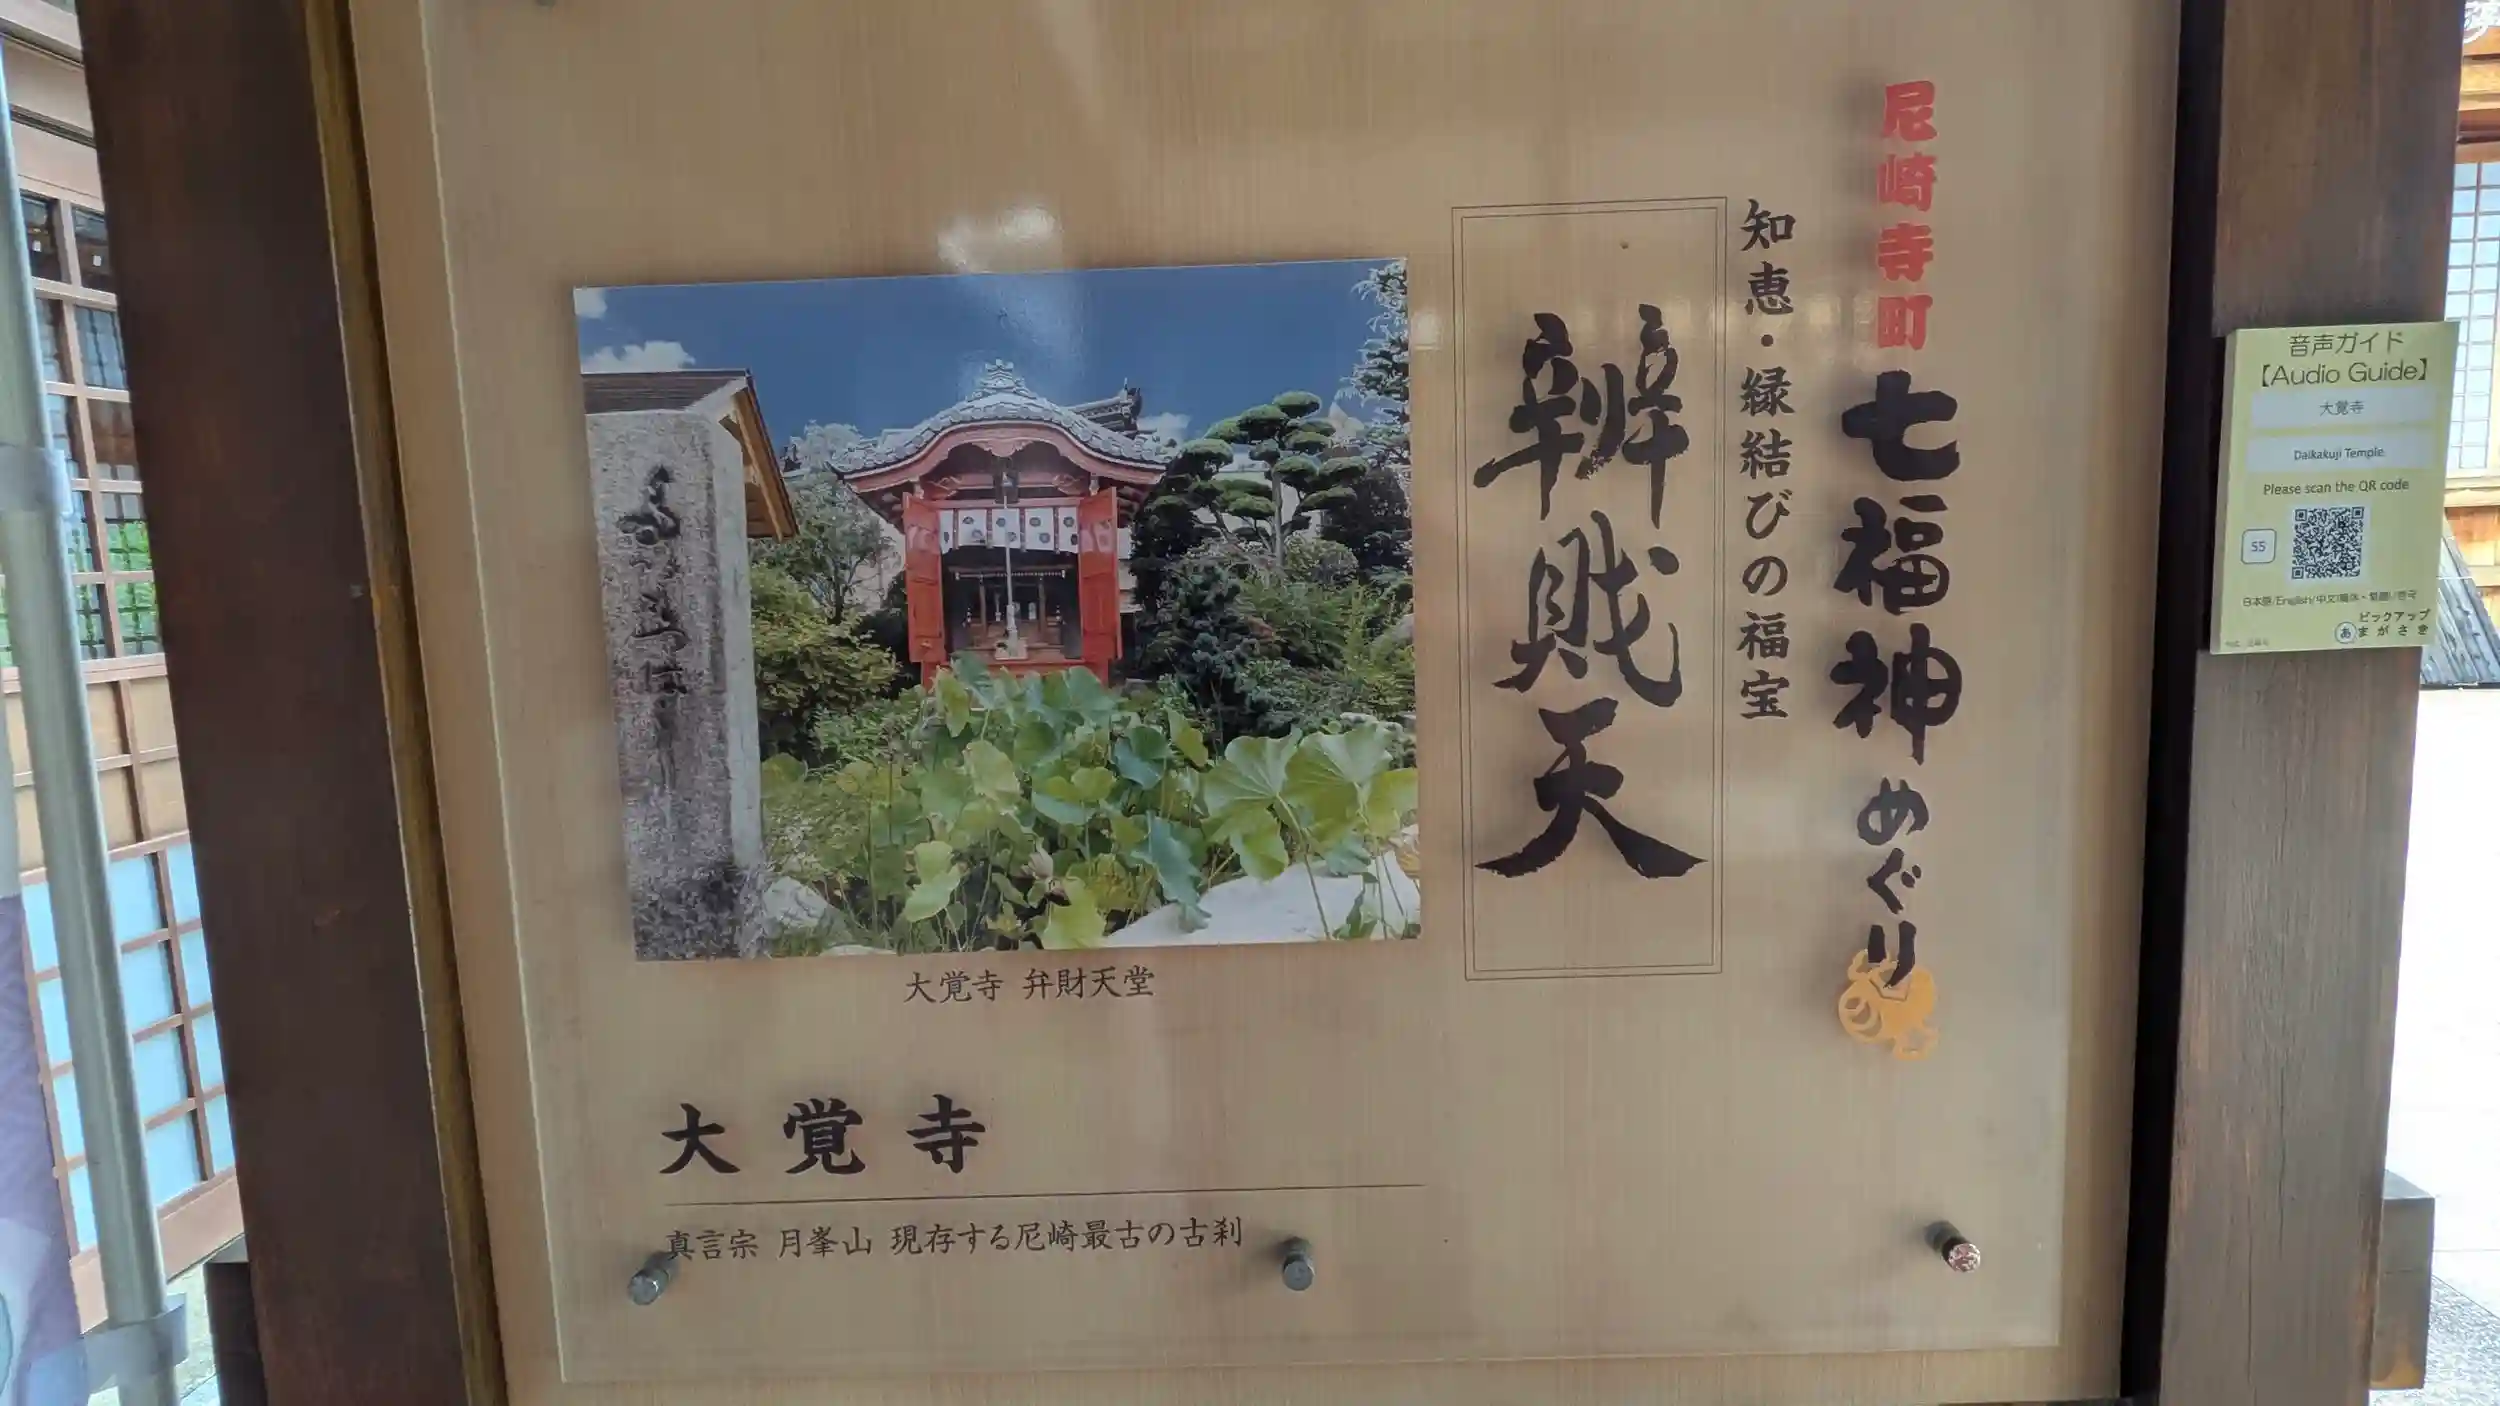 尼崎寺町七福神めぐり
知恵・縁結びの福宝
辨戝天
大覚寺 弁財天堂
大覚寺
真言宗 月峯山 現存する尼崎最古の古刹
音声ガイド
【Audio Guide】
大覚寺
Daikakuji Temple
Please scan the QR code
55
日本語/English/中文(簡体・繁體)/한국
ピックアップ
あまがさき